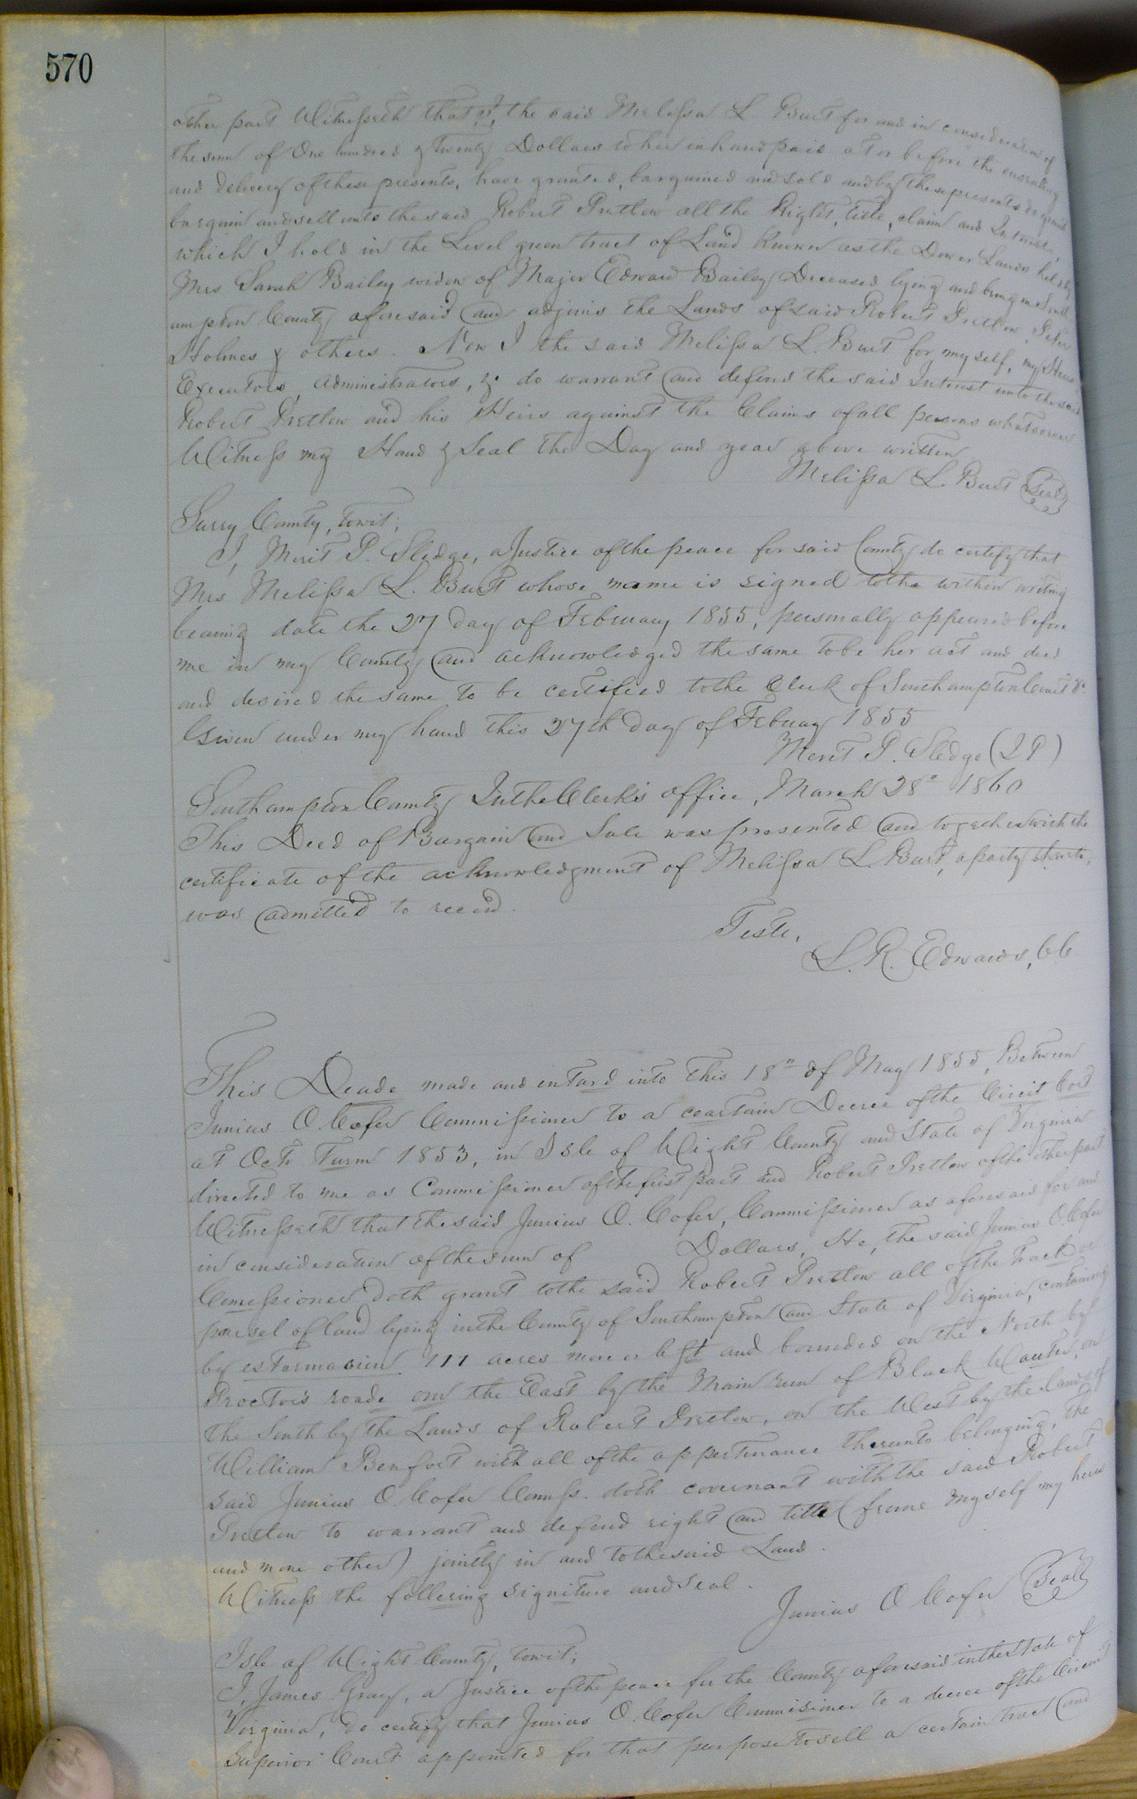 570
other part Witnesseth that I, the said Melissa L. Burt for and in consideration of
the sum of One hundred & twenty Dollars to her in hand paid at or before the ensealing
and delivery of these presents, have granted, bargained and sold and by these presents do grant
bargain and sell unto the said Robert Pretlow all the Right, title, claim and Interest,
which I hold in the Level green tract of Land known as the Dower Lands held by
Mrs Sarah Bailey widow of Major Edward Bailey Deceased lying and being in South
ampton County aforesaid and adjoins the Lands of said Robert Pretlow, Peter
Holmes & others. Now I the said Melissa L. Burt for myself, my Heirs
Executors, Administrators, &c do warrant and defend the said Interest unto the said
Robert Pretlow and his Heirs against the Claims of all persons whatsoever
Witness my Hand & Seal the Day and year above written
Melissa L. Burt (Seal)
Surry County, towit;
I, Merit P. Sledge, a Justice of the peace for said County do certify that
Mrs Melissa L. Burt whose name is signed to the within writing
bearing date the 27 day of February 1855, personally appeared before
me in my County and acknowledged the same to be her act and deed
and desired the same to be certified to the Clerk of Southampton Court &c.
Given under my hand this 27th day of Febuay 1855
Merit P. Sledge (J P)
Southampton County In the Clerk's office, March 28th 1860
This Deed of Bargain and Sale was presented and together with the
certificate of the acknowledgment of Melissa L. Burt, a party thereto,
was admitted to record.
Teste,
L. R. Edwards, CC
This Deade made and entard into this 18th of May 1855, Between
Junius O. Cofer Commissioner to a ceartain Decree of the Circit Cort
at Octo Turm 1853, in Isle of Wight County and State of Virginia
directed to me as Commissioner of the first part and Robert Pretlow of the other part
Witnesseth that the said Junius O. Cofer, Commissioner as aforesaid for and
in consideration of the sum of Dollars, He, the said Junius O. Cofer
Comissioner doth grant to the said Robert Pretlow all of the track or
parsel of land lying in the County of Southampton and State of Virginia, containing
by estarmacion 111 acres more or less and bounded on the North by
Proctors roade on the East by the Main run of Black Wauter, on
the South by the Lands of Robert Pretlow, on the West by the land of
William Benfort with all of the appertenance thereunto belonging, the
said Junius O. Cofer Comss. doth covernant with the said Robert
Pretlow to warrant and defend right and title (frome myself my heirs
and none other) jointly in and to the said Land.
Witness the follering signiture and seal.
Junius O Cofer (Seal)
Isle of Wight County, towit;
I, James Gray, a Justice of the peace for the County aforesaid in the State of
Virginia, do certify that Junius O. Cofer Commisioner to a decree of the Circuit
Superior Court appointed for that purpose to sell a certain tract and